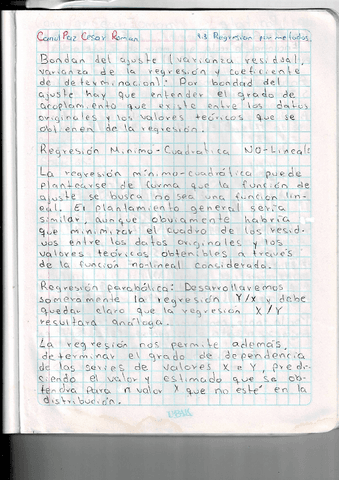 Camul Paz Cesar Roman 1.3 Regresion
Bondan del ajuste (varianza residual,
varianza de la regresión y coeficiente
de determinación): Por bondad del
ajuste hay que entender el grado de
acoplamiento que existe entre los datos
originales y los valores teóricos que se
obtienen de la regresión.
Regresión Minimo-Cuadratica NO-Lineal:
La regresión mínimo-cuadrática puede
plantearse de forma que la función de
ajuste se busca no sea una función lin-
eal. El planteamiento general sería
similar, aunque obviamente habría
que minimizar el cuadro de los resid-
uos entre los datos originales y los
valores teóricos obtenibles a través
de la función no-lineal considerado.
Regresión parabólica: Desarrollaremos
someramente la regresión Y/X y debe
quedar claro que la regresion X/Y
resultará análoga.
La regresión nos permite además,
determinar el grado de dependencia
de las series de valores X e Y, predi-
ciendo el valor y estimado que se ob-
tendra para n valor X que no esté en la
distribución.